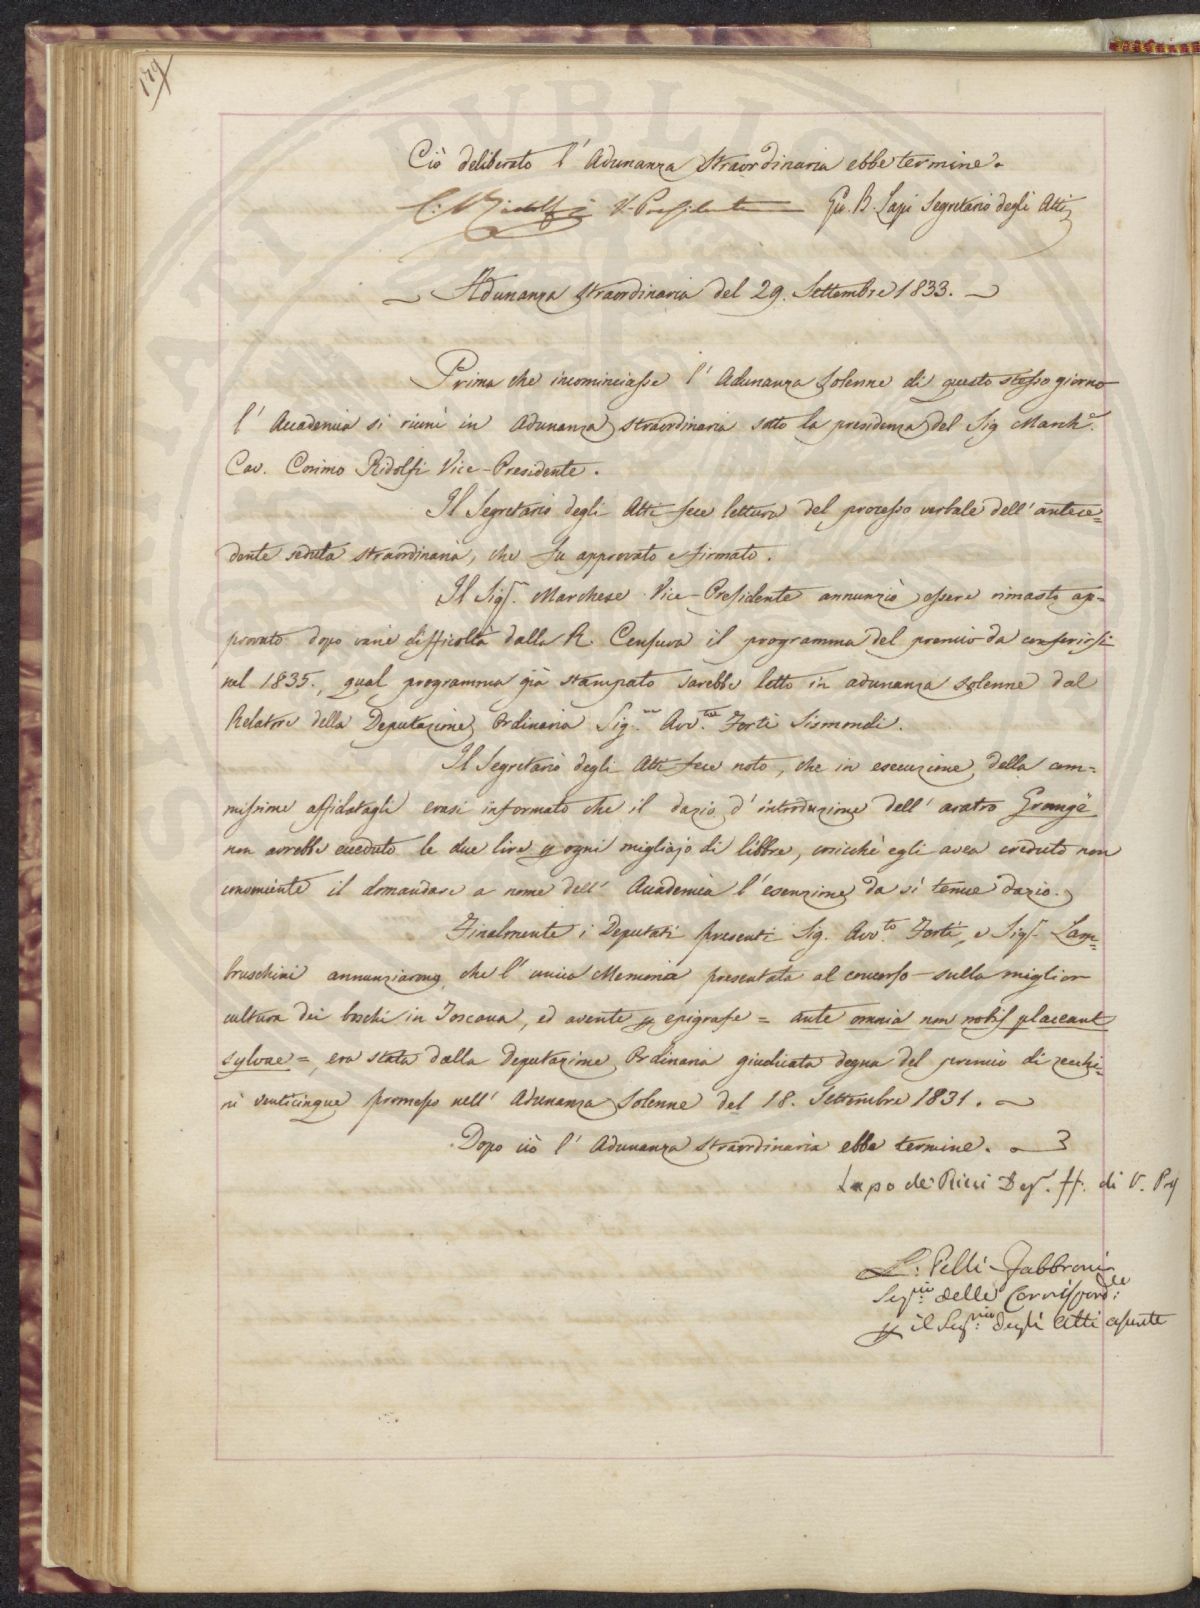 179
Ciò deliberato l'Adunanza Straordinaria ebbe termine.
C: Ridolfi V. Presidente Gio. B. Lapi Segretario degli Atti
Adunanza straordinaria del 29. Settembre 1833.
Prima che incominciasse l'Adunanza Solenne di questo stesso giorno
l'Accademia si riunì in Adunanza straordinaria sotto la presidenza del Sig March.e
Cav. Cosimo Ridolfi Vice-Presidente.
Il Segretario degli Atti fece lettura del processo verbale dell'antece=
dente seduta straordinaria, che fu approvato e firmato.
Il Sig.r Marchese Vice-Presidente annunziò essere rimasto ap=
provato dopo varie difficoltà dalla R. Censura il programma del premio da conferirsi
nel 1835., qual programma già stampato sarebbe letto in adunanza solenne dal
Relatore della Deputazione Ordinaria Sig.re Avv.to Forti Sismondi.
Il Segretario degli Atti fece noto, che in esecuzione della com=
missione affidatagli erasi informato che il dazio d'introduzione dell'aratro Grangè
non avrebbe ecceduto le due lire p ogni migliajo di libbre, cosicchè egli avea creduto non
conveniente il domandare a nome dell'Accademia l'esenzione da sì tenue dazio.
Finalmente i Deputati presenti Sig. Avv.to Forti, e Sig.r Lam=
bruschini annunziarono, che l'unica Memoria presentata al concorso sulla miglior
cultura dei boschi in Toscana, ed avente p epigrafe = ante omnia non nobis placeant
sylvae =, era stata dalla Deputazione Ordinaria giudicata degna del premio di zecchi=
ni venticinque promesso nell'Adunanza Solenne del 18. Settembre 1831.
Dopo ciò l'Adunanza straordinaria ebbe termine.
Lapo de' Ricci Dep. ff. di V. Pres
L: Pelli-Fabbroni
Seg.rio delle Corrispond.ze
p il Seg.rio degli Atti assente